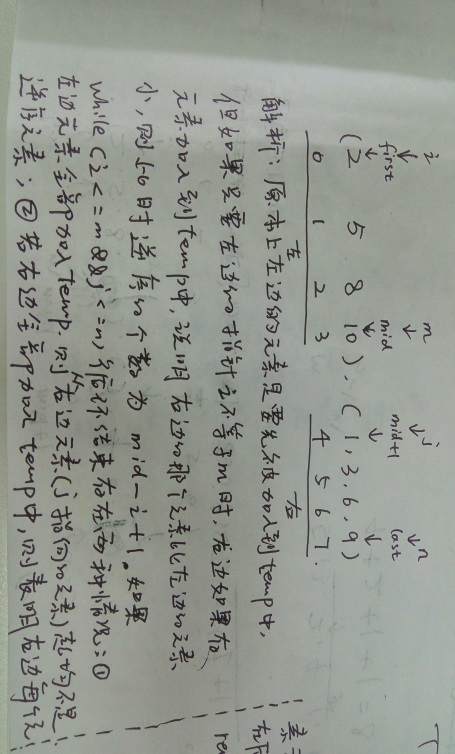 i m j n
first mid mid+1 last
(2 5 8 10), (1, 3, 6, 9)
0 1 2 3 4 5 6 7.
左 右
解析: 原本上左边的元素是要先被加入到temp中,
但如果只要左边的指针i不等于m时, 右边如果有
元素加入到temp中, 说明右边的那个元素比左边的元素
小, 则此时逆序的个数为 mid-i+1。如果
while (i<=m&&j<=n) 循环结束右左两种情况: ①
左边元素全部加入temp, 则右边元素(j指向的元素)起均不是
逆序元素; ②若右边全部加入temp中, 则表明右边每个